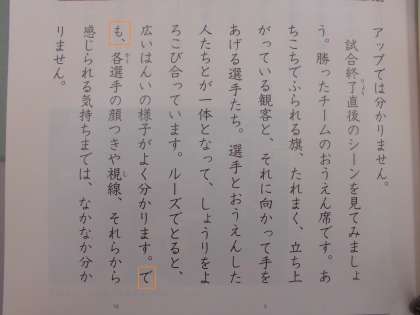 アップでは分かりません。
試合終了直後のシーンを見てみましょ
う。勝ったチームのおうえん席です。あ
ちこちでふられる旗、たれまく、立ち上
がっている観客と、それに向かって手を
あげる選手たち。選手とおうえんした
人たちとが一体となって、しょうりをよ
ろこび合っています。ルーズでとると、
広いはんいの様子がよく分かります。で
も、各選手の顔つきや視線、それらから
感じられる気持ちまでは、なかなか分か
りません。